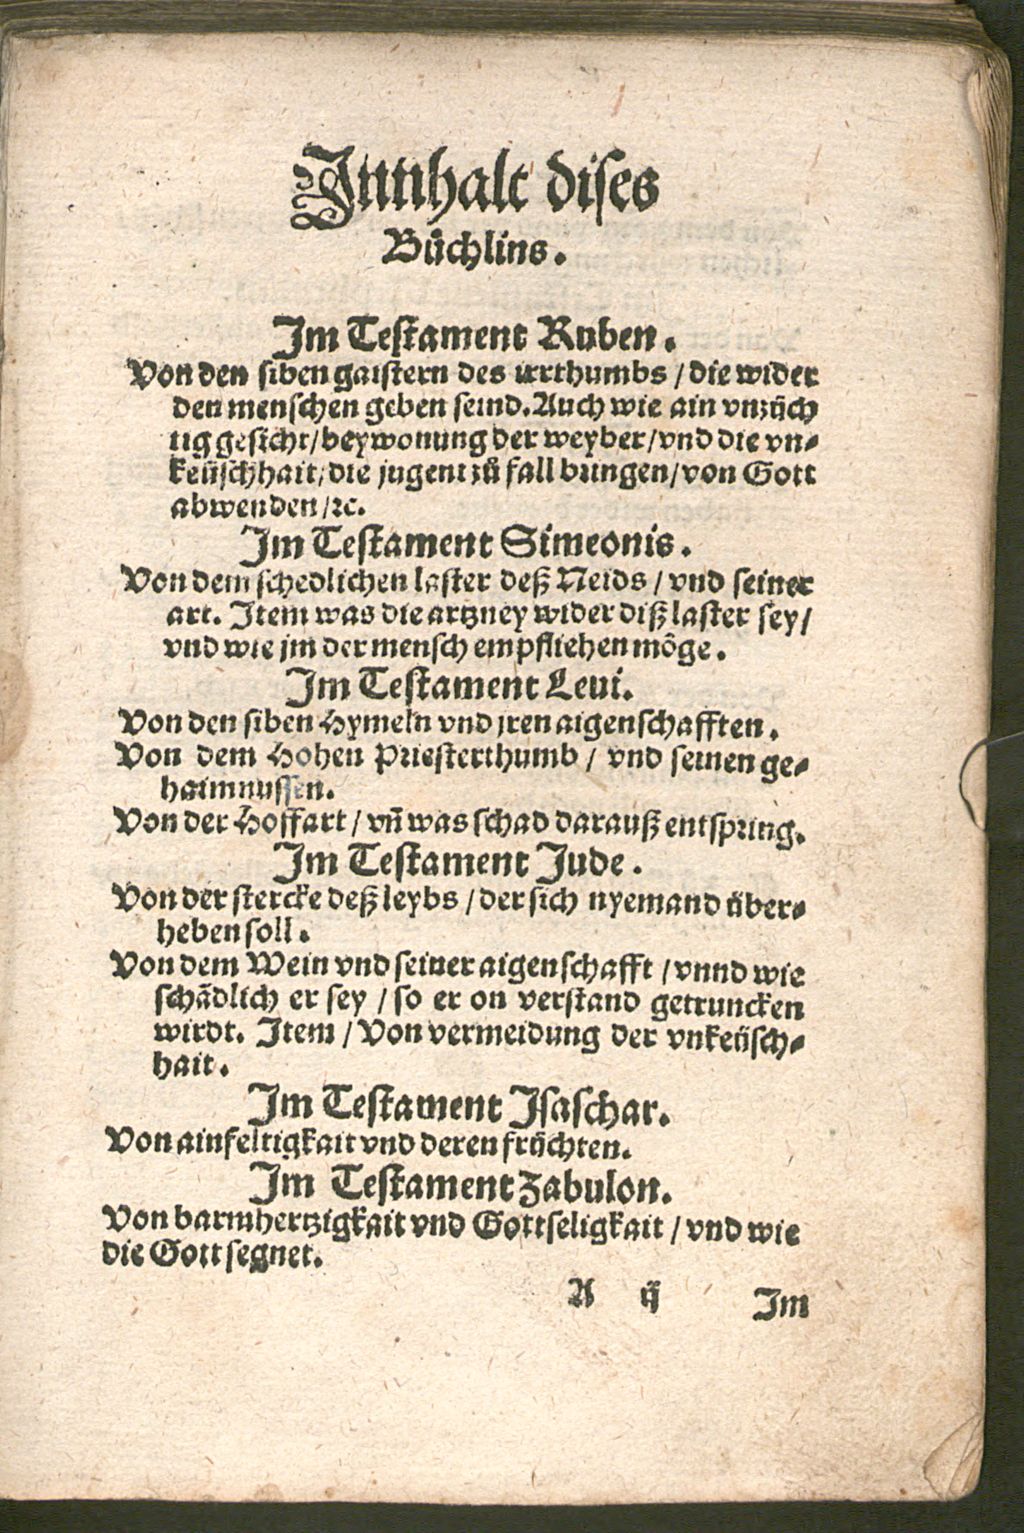 Innhalt dises
Büchlins.
Im Testament Ruben.
Von den siben gaistern des irrthumbs / die wider
den menschen geben seind. Auch wie ain vnzüch
tig gesicht / beywonung der weyber / vnd die vn⸗
keüschhait / die jugent zů fall bringen / von Gott
abwenden / ꝛc.
Im Testament Simeonis.
Von dem schedlichen laster deß Neids / vnd seiner
art. Item was die artzney wider diß laster sey /
vnd wie jm der mensch empfliehen möge.
Im Testament Leui.
Von den siben Hymeln vnd jren aigenschafften.
Von dem Hohen Priesterthumb / vnd seinen ge⸗
haimnussen.
Von der Hoffart / vñ was schad darauß entspring.
Im Testament Jude.
Von der stercke deß leybs / der sich nyemand über⸗
heben soll.
Von dem Wein vnd seiner aigenschafft / vnnd wie
schädlich er sey / so er on verstand getruncken
wirdt. Item / Von vermeidung der vnkeüsch⸗
hait.
Im Testament Isaschar.
Von ainfeltigkait vnd deren früchten.
Im Testament Zabulon.
Von barmhertzigkait vnd Gottseligkait / vnd wie
die Gott segnet.
A ij Im